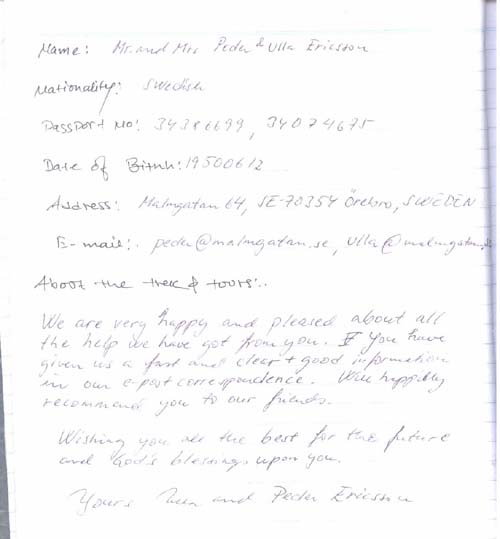 Name: Mr. and Mrs Peder & Ulla Ericsson
Nationality: Swedish
Passport No: 34386699, 34074675
Date of Birth: 19500612
Address: Malmgatan 64, SE-70354 Örebro, SWEDEN
E-mail: peder@malmgatan.se, ulla@malmgatan.se
About the trek & tours:..
We are very happy and pleased about all
the help we have got from you. You have
given us a fast and clear + good information
in our e-post correspondence. Will happily
recommend you to our friends.
Wishing you all the best for the future
and God's blessings upon you.
Yours Ulla and Peder Ericsson